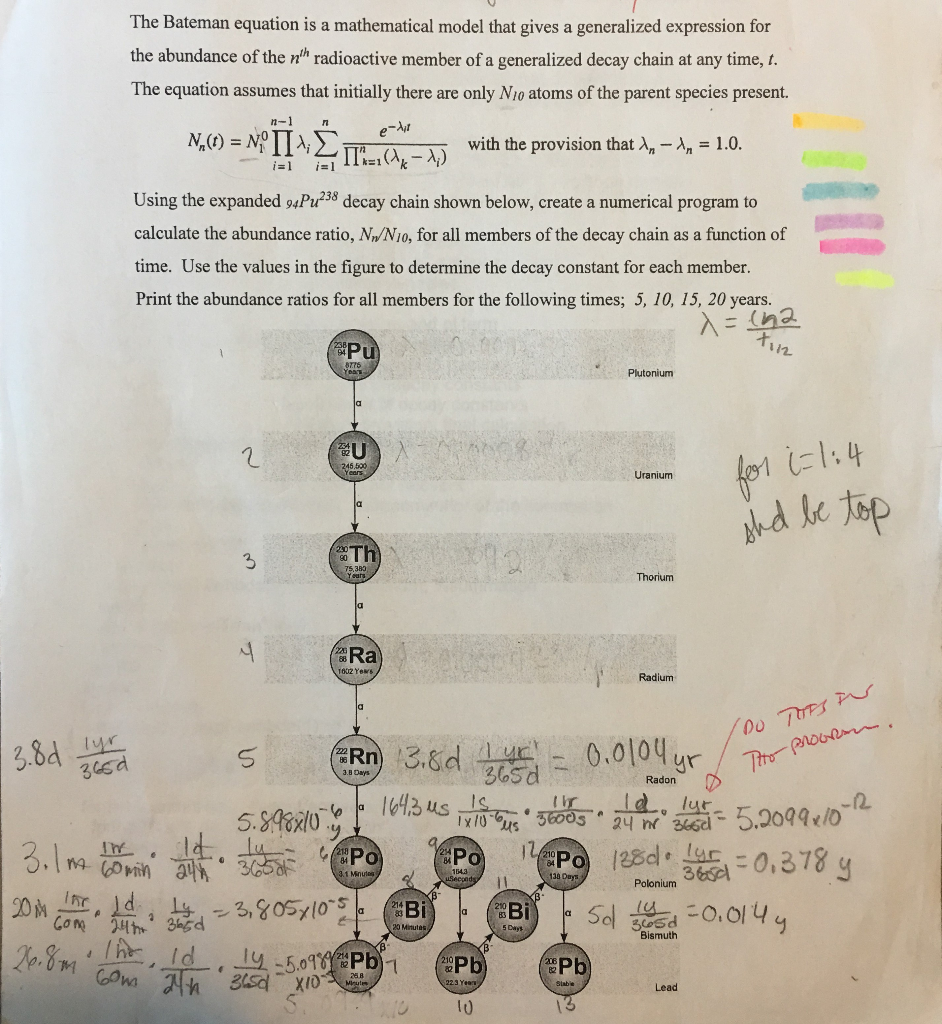 The Bateman equation is a mathematical model that gives a generalized expression for
the abundance of the nᵗʰ radioactive member of a generalized decay chain at any time, t.
The equation assumes that initially there are only N₁₀ atoms of the parent species present.
Nₙ(t) = N₁⁰ ∏ᵢ₌₁ⁿ⁻¹ λᵢ ∑ᵢ₌₁ⁿ e^(-λᵢt) / ∏ₖ₌₁ⁿ(λₖ − λᵢ) with the provision that λₙ − λₙ = 1.0.
Using the expanded ₉₄Pu²³⁸ decay chain shown below, create a numerical program to
calculate the abundance ratio, Nₙ/N₁₀, for all members of the decay chain as a function of
time. Use the values in the figure to determine the decay constant for each member.
Print the abundance ratios for all members for the following times; 5, 10, 15, 20 years.
λ = ln2 / t₁/₂
1 238 94 Pu 8775 Years Plutonium
α
2 234 92 U 245,500 Years Uranium
for i=1:4
shd be top
α
3 230 90 Th 75,380 Years Thorium
α
4 226 88 Ra 1602 Years Radium
α
DO THIS IN
THE PROGRAM.
3.8d 1yr/365d 5 222 86 Rn 3.8 Days 3.8d 1yr/365d = 0.0104 yr Radon
5.898x10⁻⁶ y α 164.3 us 1s/1x10⁻⁶us · 1hr/3600s · 1d/24 hr · 1yr/365d = 5.2099x10⁻¹²
3.1 m 1hr/60min · 1d/24h · 1y/365d 6 218 84 Po 3.1 Minutes 9 214 84 Po 164.3 uSeconds 12 210 84 Po 138 Days 138d · 1yr/365d = 0.378 y
Polonium
20m 1hr/60m · 1d/24hr · 1y/365d = 3.805x10⁻⁵ α 8 214 83 Bi 20 Minutes β- α 11 210 83 Bi 5 Days β- α 5d 1y/365d = 0.014 y
Bismuth
26.8m · 1hr/60m · 1d/24h · 1y/365d = 5.098 x10⁻⁵ 214 82 Pb 26.8 Minutes 7 β- 210 82 Pb 22.3 Years β- 206 82 Pb Stable Lead
10 13